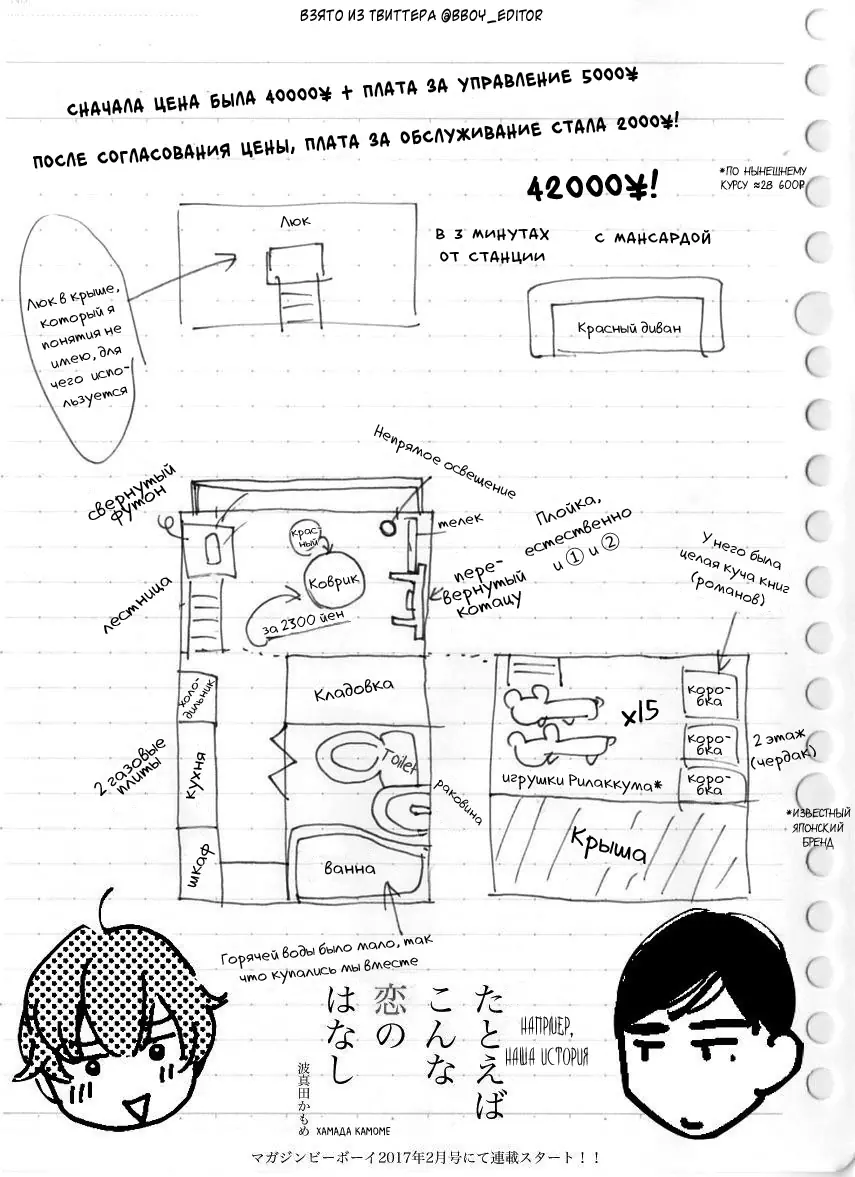 ВЗЯТО ИЗ ТВИТТЕРА @BBOY_EDITOR
СНАЧАЛА ЦЕНА БЫЛА 40000¥ + ПЛАТА ЗА УПРАВЛЕНИЕ 5000¥
ПОСЛЕ СОГЛАСОВАНИЯ ЦЕНЫ, ПЛАТА ЗА ОБСЛУЖИВАНИЕ СТАЛА 2000¥!
42000¥!
*ПО НЫНЕШНЕМУ
КУРСУ ≈28 600₽
Люк
В 3 МИНУТАХ
ОТ СТАНЦИИ
С МАНСАРДОЙ
Красный диван
Люк в крыше,
который я
понятия не
имею, для
чего испо-
льзуется
свернутый
футон
Непрямое освещение
телек
Плойка,
естественно
и ① и ②
крас-
ный
Коврик
за 2300 йен
пере-
вернутый
котацу
лестница
У него была
целая куча книг
(романов)
холо-
дильник
Кладовка
2 газовые
плиты
кухня
Toilet
раковина
шкаф
ванна
x15
игрушки Рилаккума*
коро-
бка
коро-
бка
коро-
бка
2 этаж
(чердак)
Крыша
*ИЗВЕСТНЫЙ
ЯПОНСКИЙ
БРЕНД
Горячей воды было мало, так
что купались мы вместе
たとえば
こんな
恋の
はなし
НАПРИМЕР,
НАША ИСТОРИЯ
波真田かもめ
ХАМАДА КАМОМЕ
マガジンビーボーイ2017年2月号にて連載スタート！！